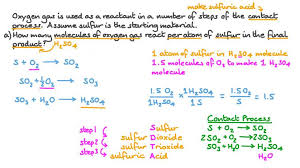 make sulfuric acid
Oxygen gas is used as a reactant in a number of steps of the contact
process. Assume sulfur is the starting material.
a) How many molecules of oxygen gas react per atom of sulfur in the final
product? H₂SO₄
1 atom of sulfur in H₂SO₄ molecule
1.5 molecules of O₂ to make 1 H₂SO₄
molecule
S + O₂ → SO₂
SO₂ + ½O₂ → SO₃
SO₃ + H₂O → H₂SO₄
1.5 O₂ / 1 H₂SO₄ × 1 H₂SO₄ / 1 S = 1.5 O₂ / 1 S = 1.5
step 1 Sulfur
step 2 sulfur Dioxide
step 3 sulfur Trioxide
sulfuric Acid
Contact Process
S + O₂ → SO₂
2SO₂ + O₂ → 2SO₃
SO₃ + H₂O → H₂SO₄